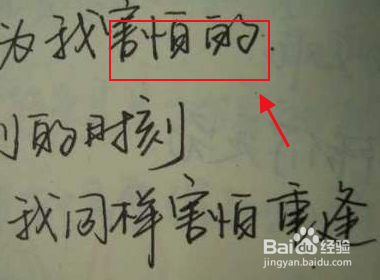 为我害怕的.
刂的时刻
我同样害怕重逢
Baidu经验
jingyan.baidu.com